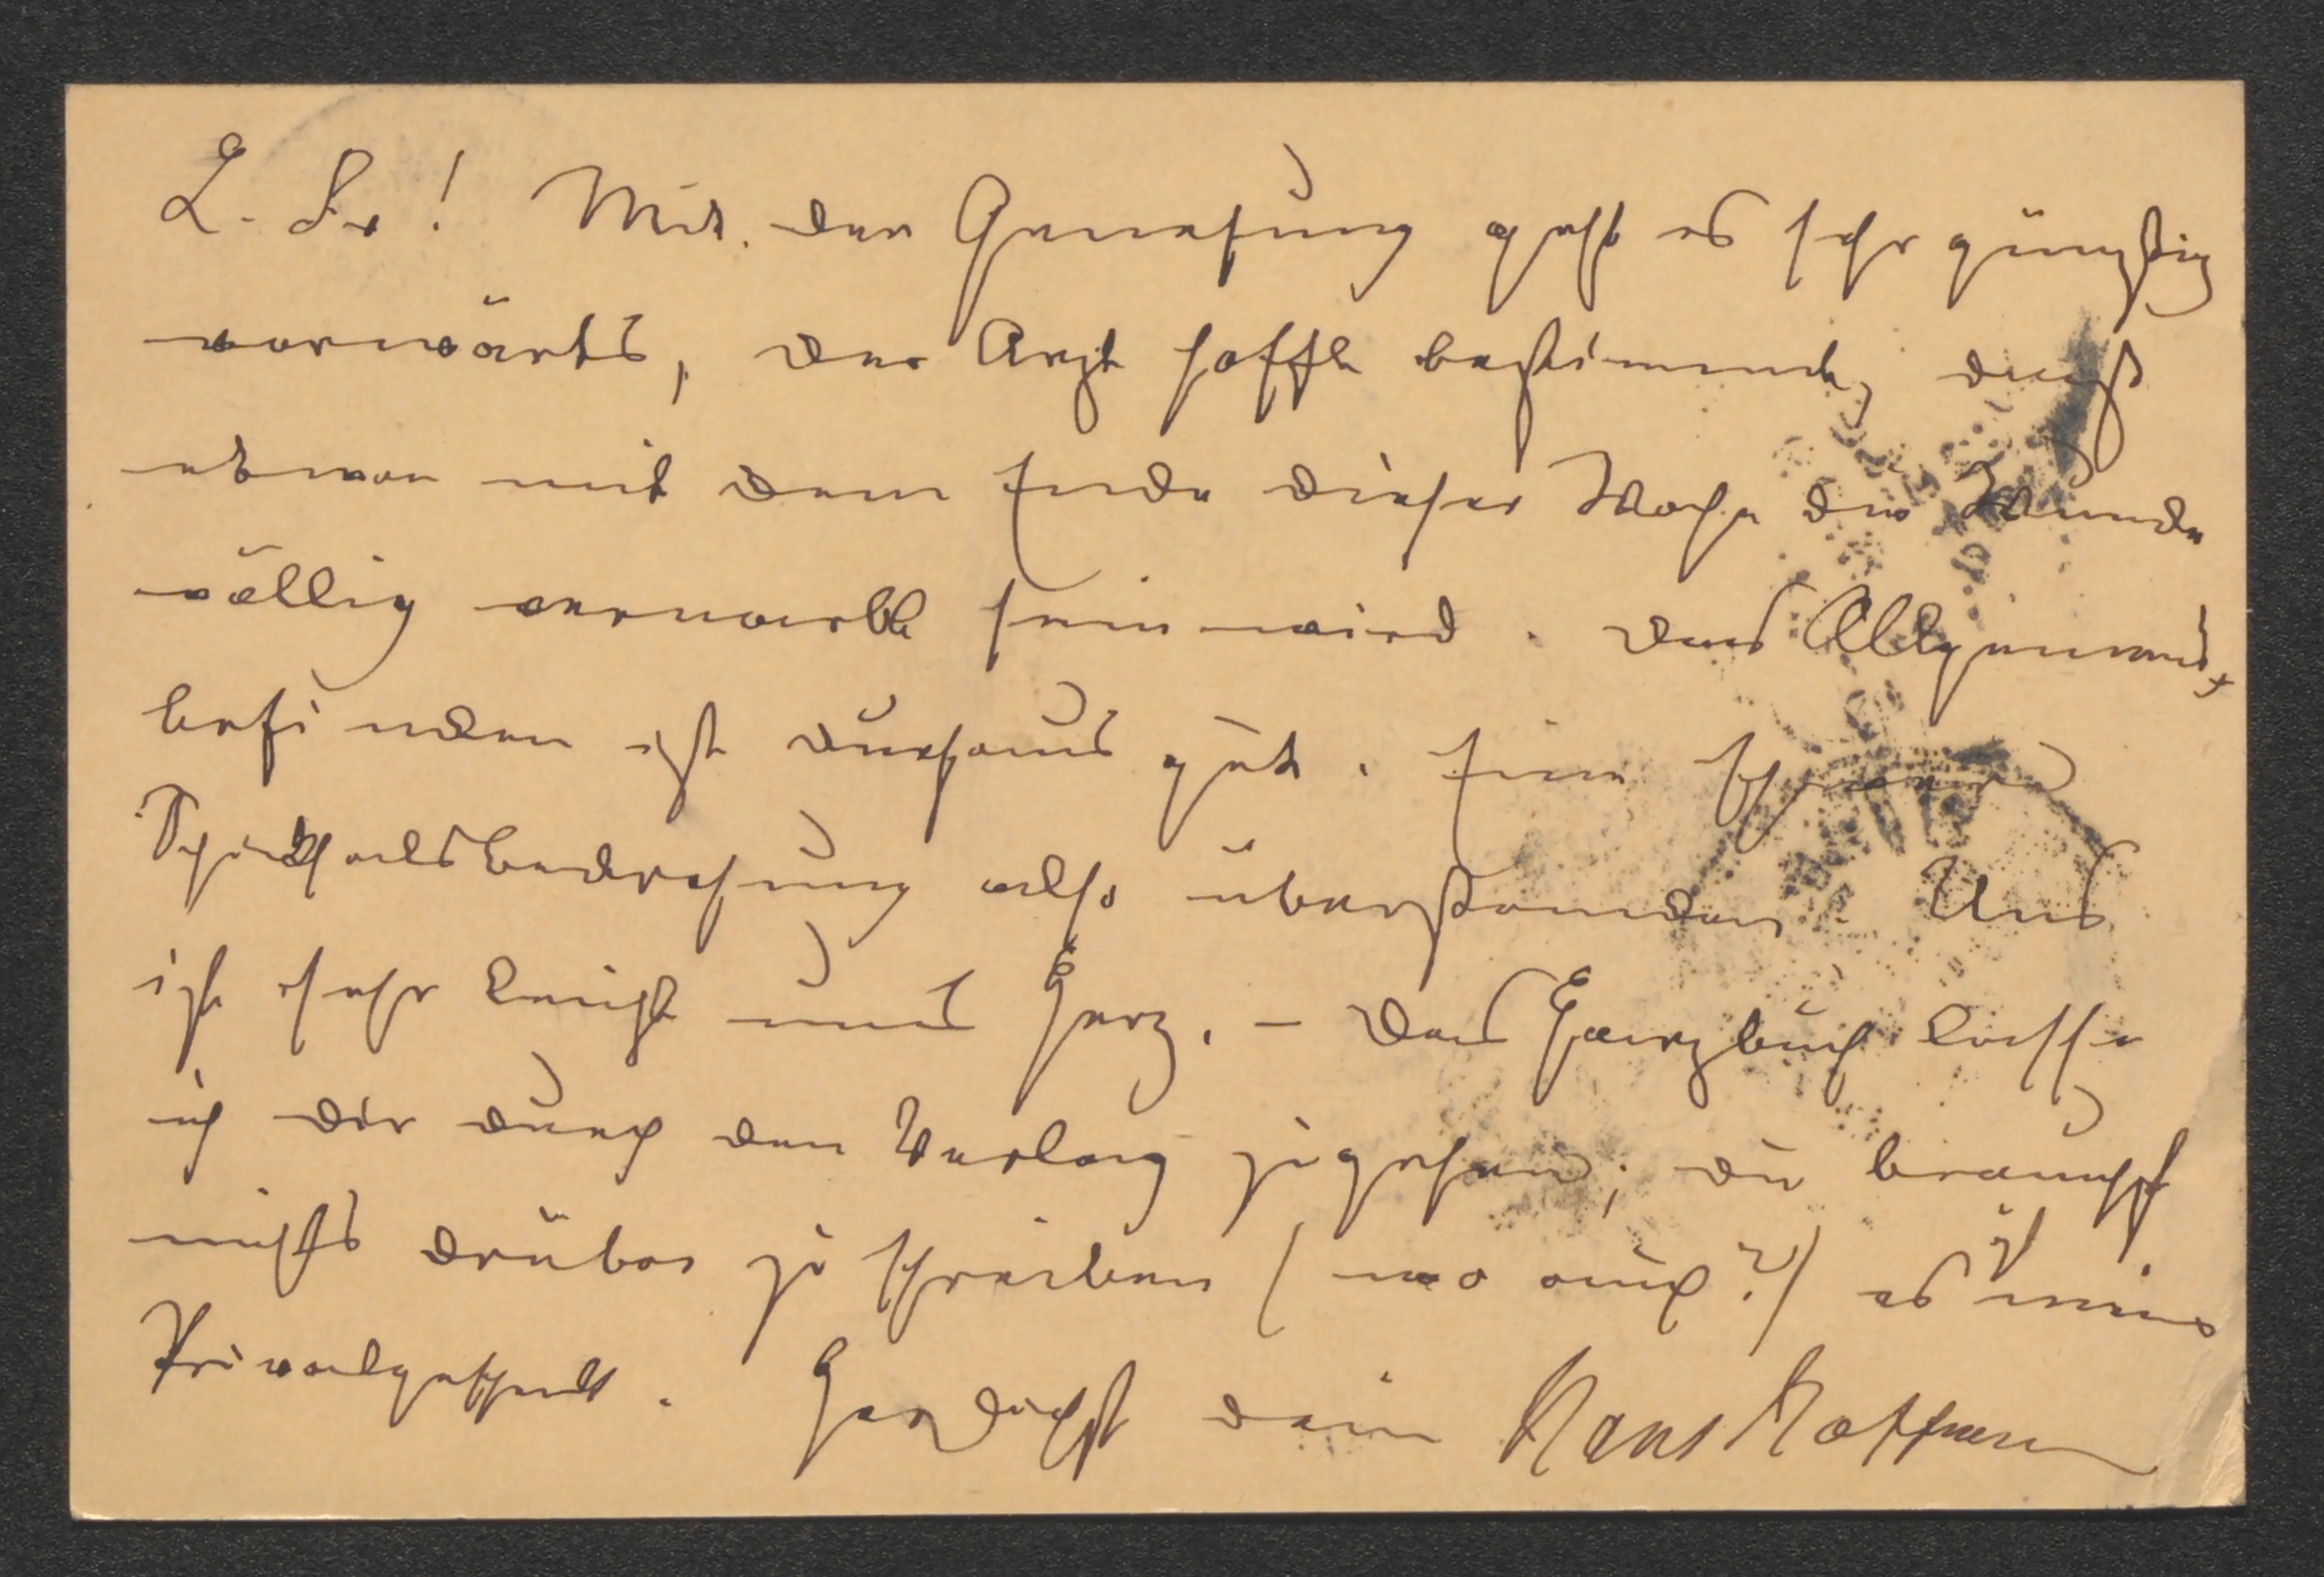 L. Fr! Mit der Genesung geht es sehr günstig
vorwärts, der Arzt hofft bestimmt, daß
etwa mit dem Ende dieser Woche die Wunde
völlig vernarbt sein wird. Das Allgemein-
befinden ist durchaus gut. Eine schwere
Schicksalsbedrohung also überstanden. Uns
ist sehr leicht ums Herz. – Das Harzbuch lasse
ich dir durch den Verlag zugehen; du brauchst
nichts drüber zu schreiben (wo auch?) es ist ein
Privatgeschenk. Herzlichst dein Hans Hoffmann